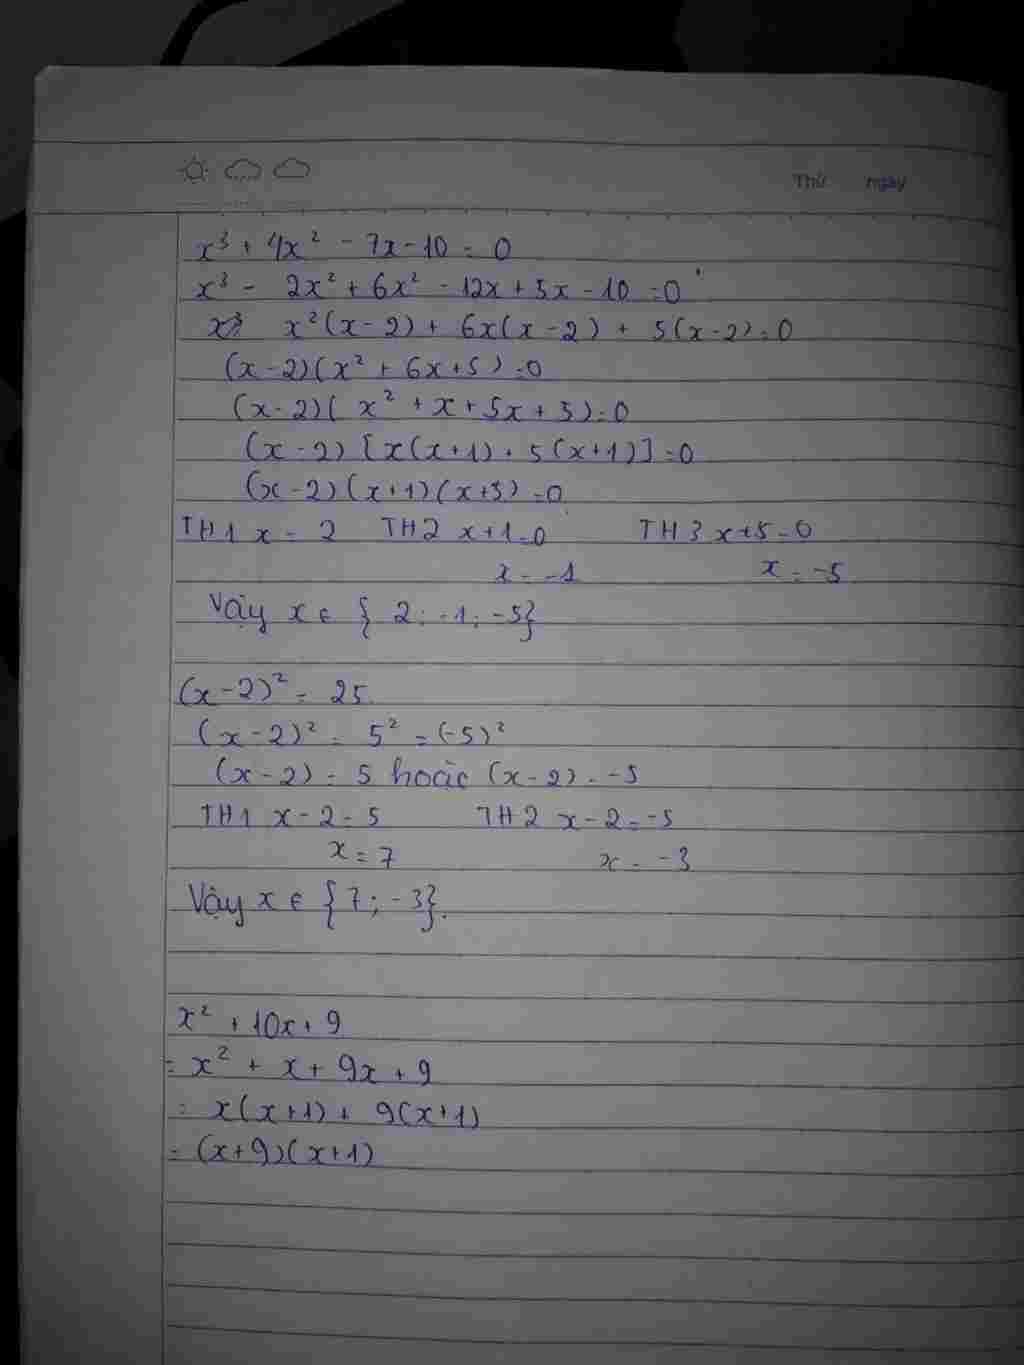 Thứ ngày
x³ + 4x² - 7x - 10 = 0
x³ - 2x² + 6x² - 12x + 5x - 10 = 0
x²(x-2) + 6x(x-2) + 5(x-2) = 0
(x-2)(x² + 6x + 5) = 0
(x-2)(x² + x + 5x + 5) = 0
(x-2)[x(x+1) + 5(x+1)] = 0
(x-2)(x+1)(x+5) = 0
TH1 x = 2 TH2 x+1=0 TH3 x+5=0
x = -1 x = -5
Vậy x ∈ {2; -1; -5}
(x-2)² = 25
(x-2)² = 5² = (-5)²
(x-2) = 5 hoặc (x-2) = -5
TH1 x-2=5 TH2 x-2=-5
x = 7 x = -3
Vậy x ∈ {7; -3}.
x² + 10x + 9
= x² + x + 9x + 9
= x(x+1) + 9(x+1)
= (x+9)(x+1)